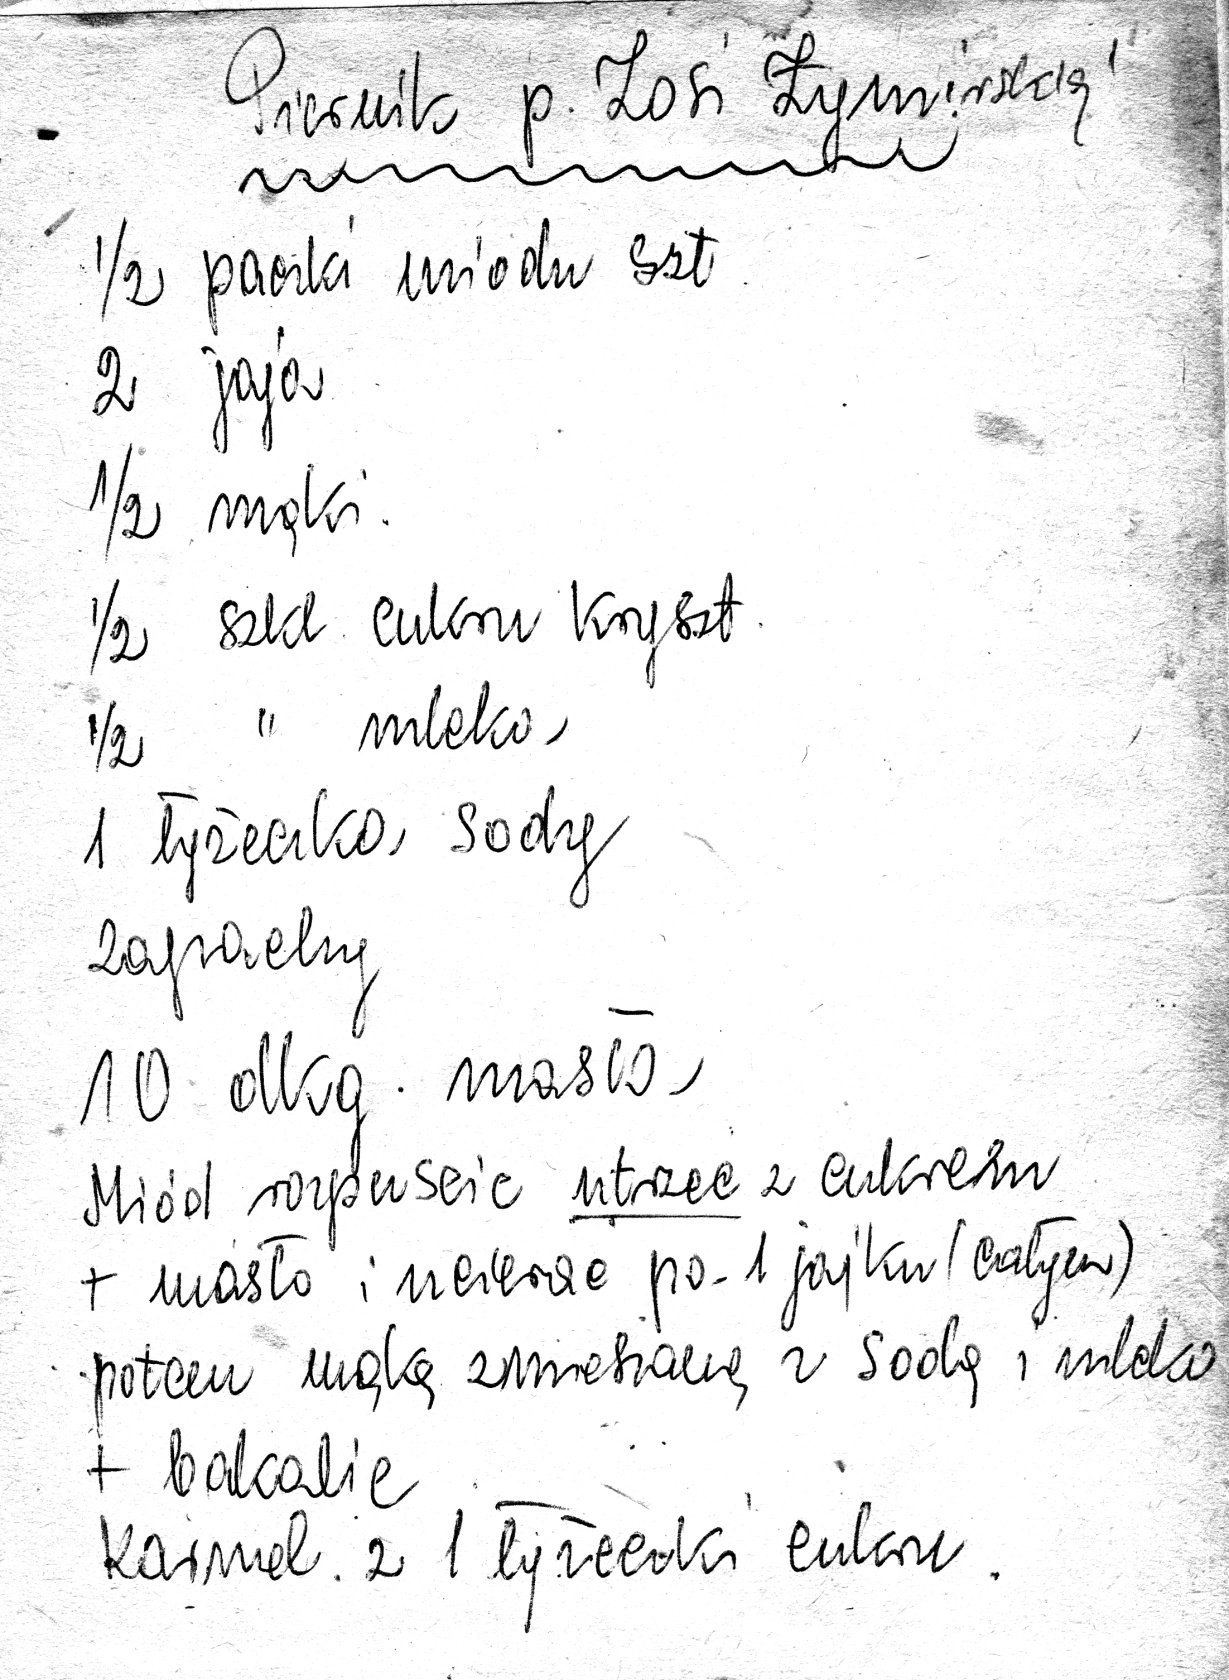 Piernik p. Zosi Żymirskiej
1/2 paczki miodu szt.
2 jaja
1/2 mąki.
1/2 szkl. cukru kryszt.
1/2 " mleka
1 łyżeczka sody
zapachy
10 dkg. masła
Miód rozpuścić utrzeć z cukrem
+ masło i ucierać po 1 jajku (całym)
potem mąką zmieszaną z sodą i mleko
+ bakalie
Karmel. z 1 łyżeczki cukru.